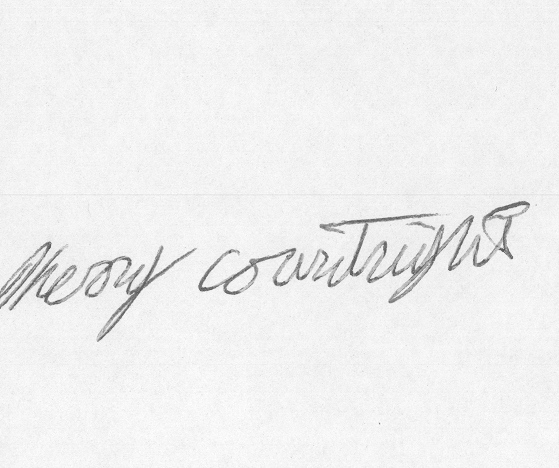 Merry Courtright